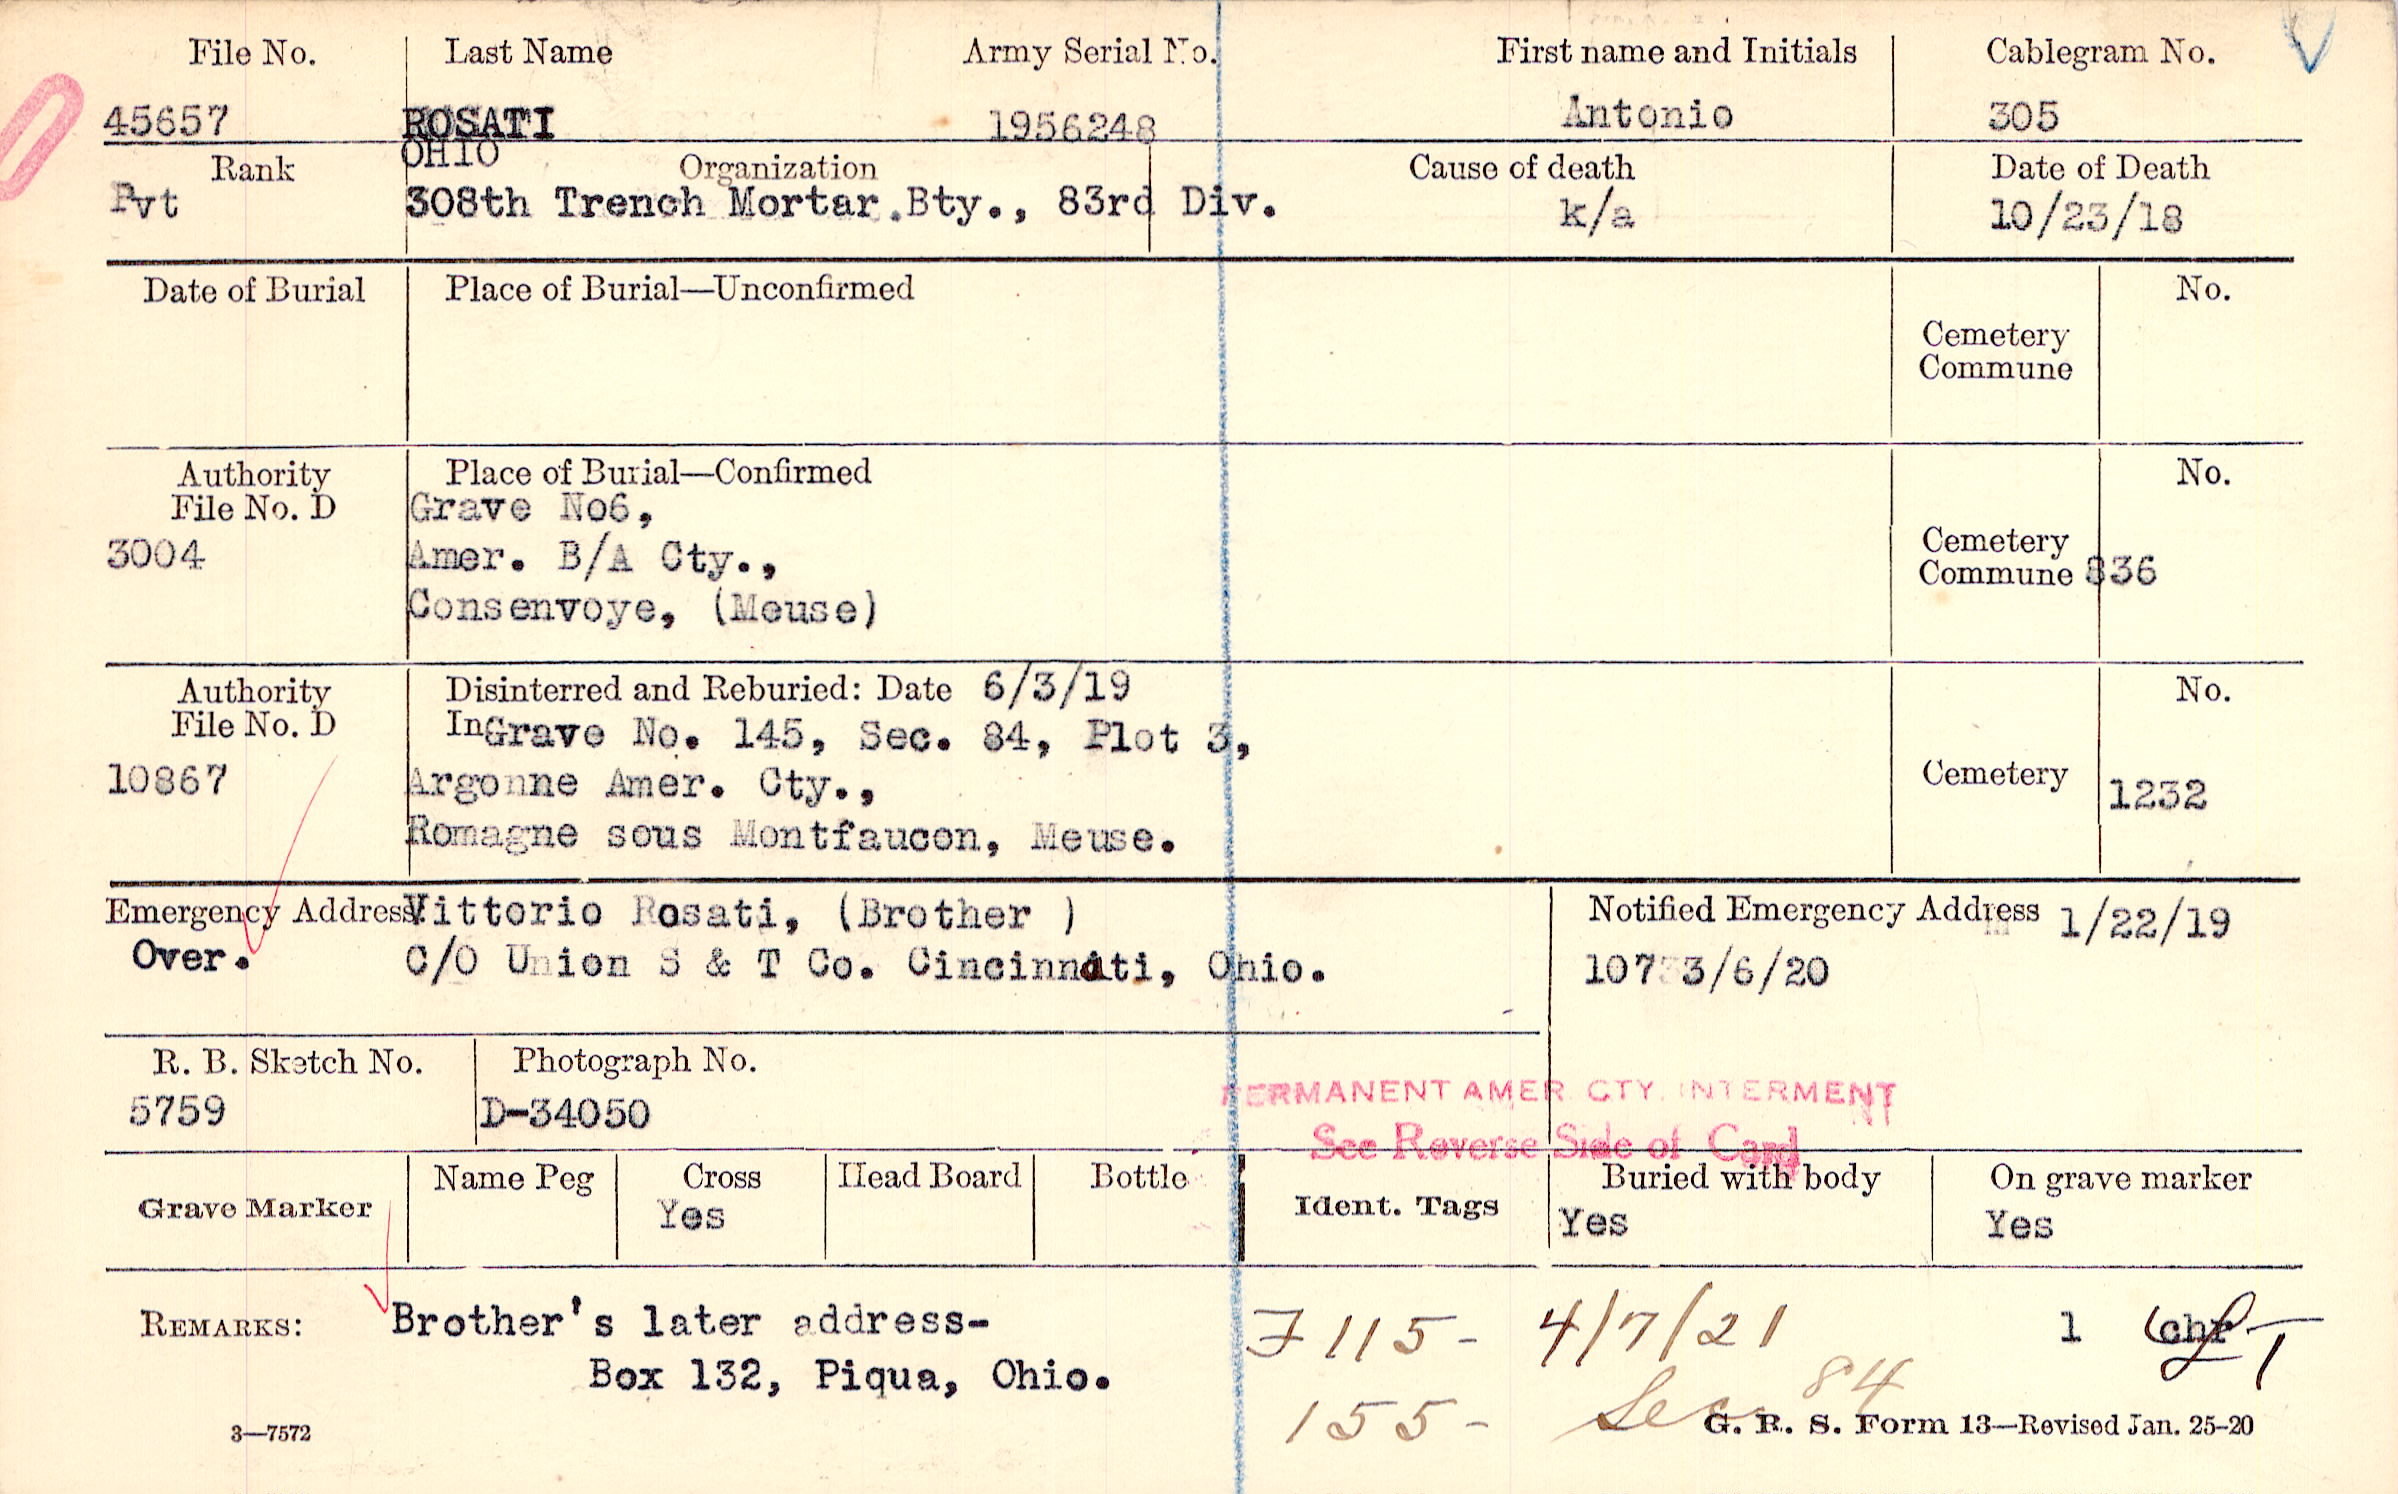 File No. Last Name Army Serial No. First name and Initials Cablegram No.
45657 ROSATI 1956248 Antonio 305
OHIO
Rank Organization Cause of death Date of Death
Pvt 308th Trench Mortar.Bty., 83rd Div. k/a 10/23/18
Date of Burial Place of Burial—Unconfirmed No.
Cemetery
Commune
Authority Place of Burial—Confirmed No.
File No. D Grave No6,
3004 Amer. B/A Cty., Cemetery
Commune 836
Consenvoye, (Meuse)
Authority Disinterred and Reburied: Date 6/3/19 No.
File No. D In Grave No. 145, Sec. 84, Plot 3,
10867 Argonne Amer. Cty., Cemetery 1232
Romagne sous Montfaucon, Meuse.
Emergency Address Vittorio Rosati, (Brother ) Notified Emergency Address 1/22/19
Over. C/O Union S & T Co. Cincinnati, Ohio. 107 3/6/20
R. B. Sketch No. Photograph No.
5759 D-34050
PERMANENT AMER CTY. INTERMENT
See Reverse Side of Card
Grave Marker Name Peg Cross Head Board Bottle Ident. Tags Buried with body On grave marker
Yes Yes Yes
REMARKS: Brother's later address- F 115- 4/7/21 1 chf
Box 132, Piqua, Ohio.
155- Sec 84
3—7572 G. R. S. Form 13—Revised Jan. 25-20